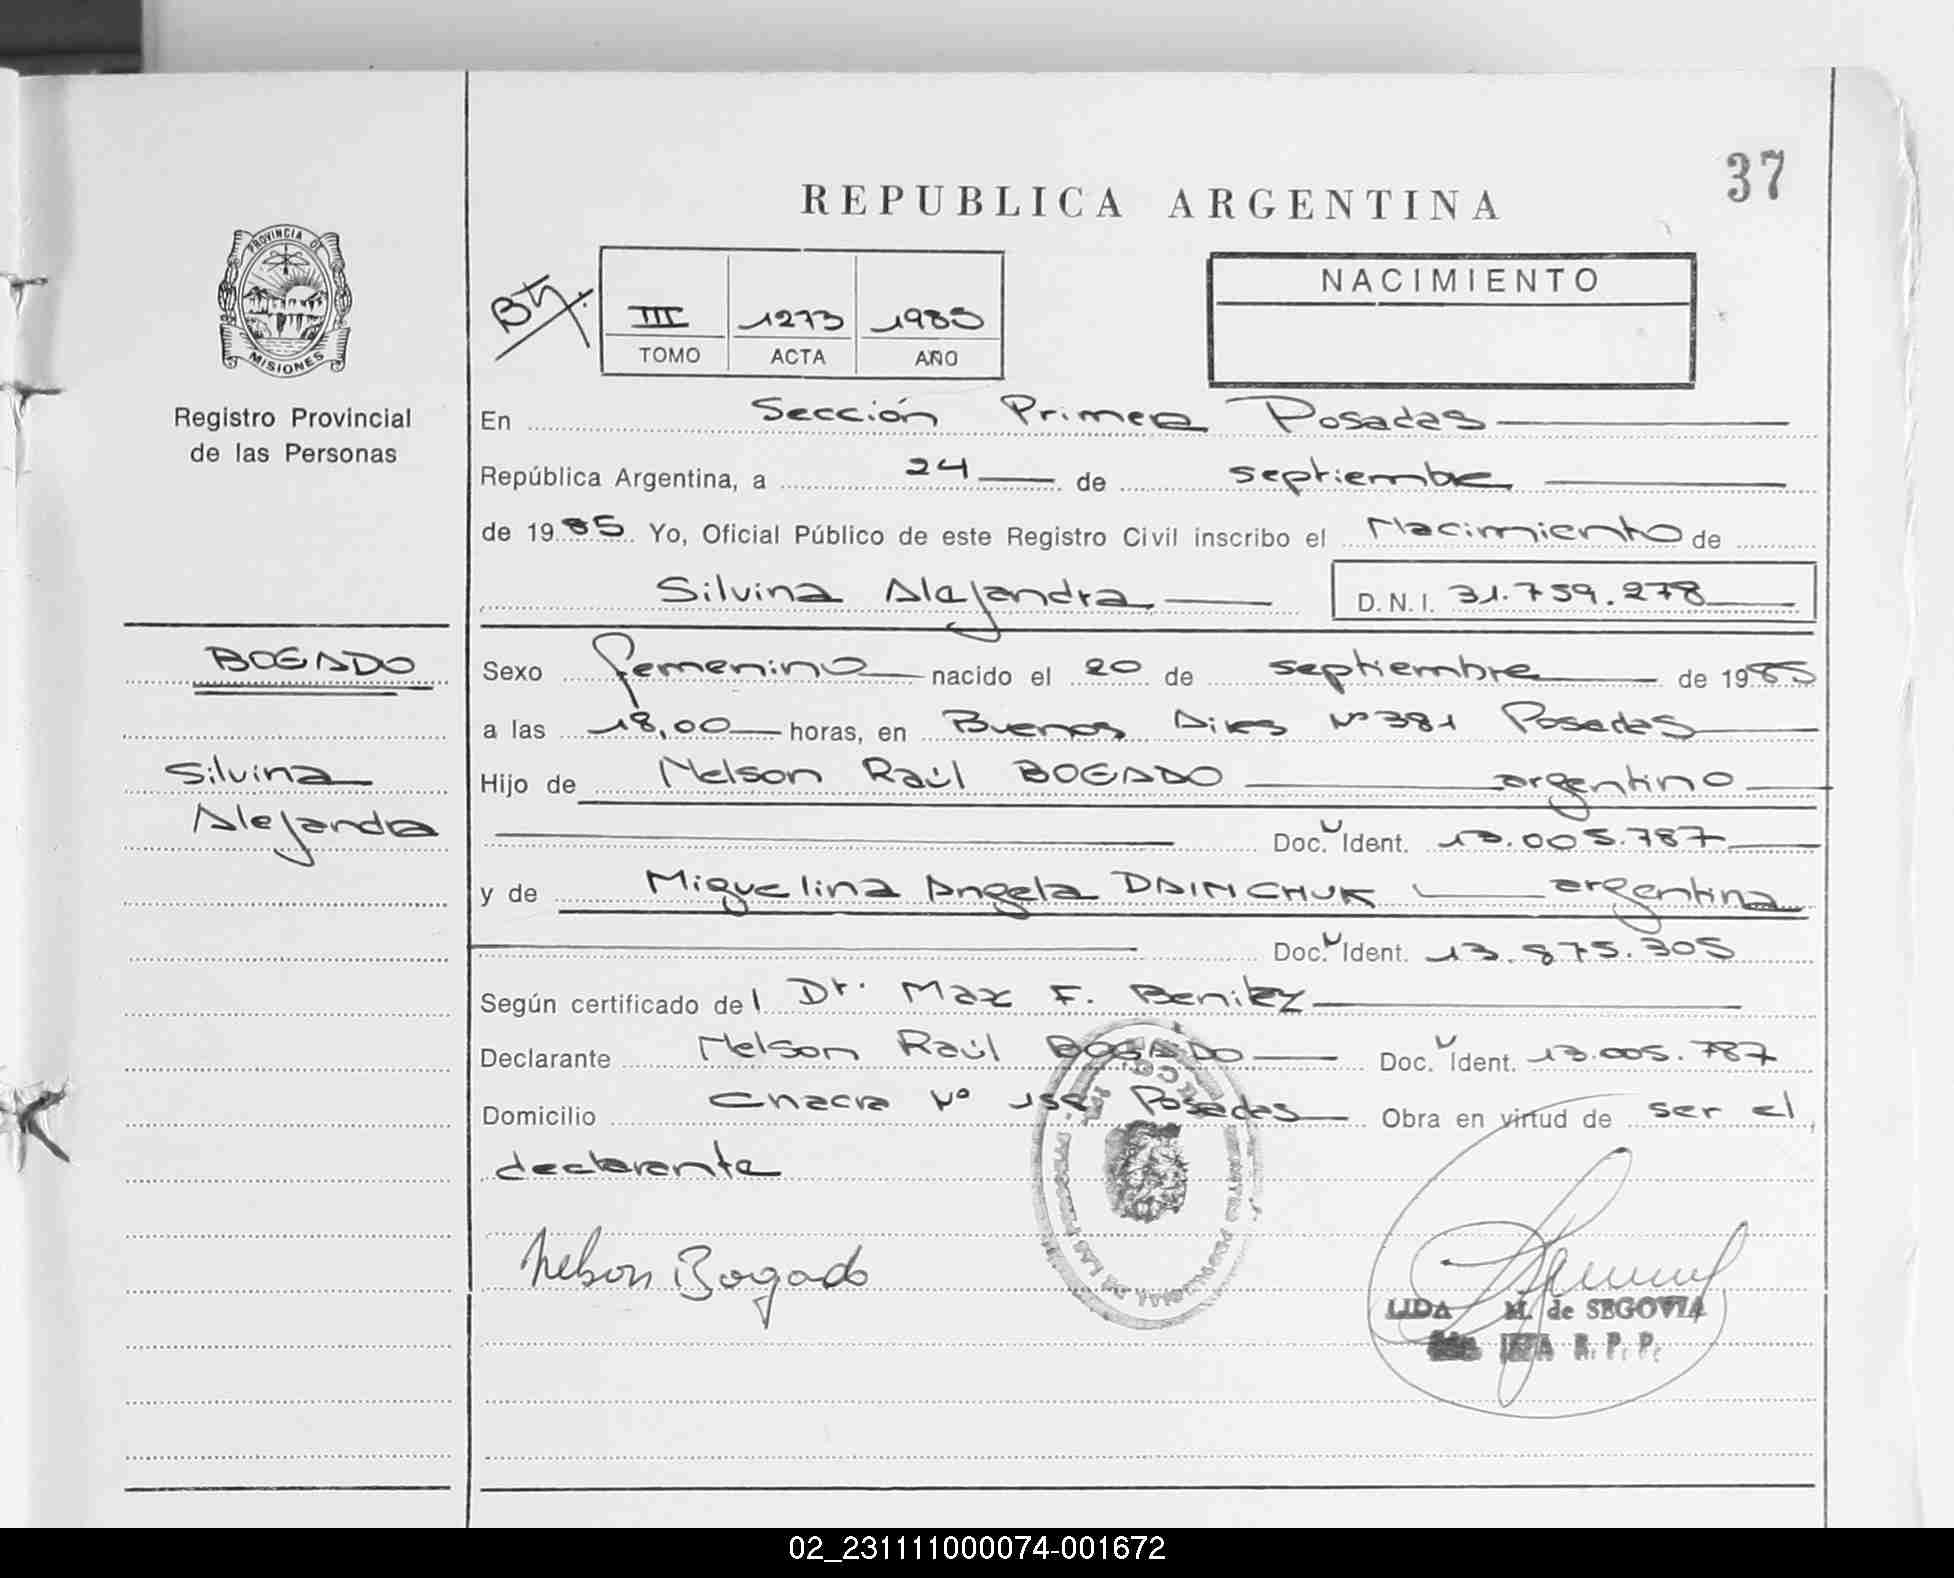 37
REPUBLICA ARGENTINA
PROVINCIA DE
MISIONES
Registro Provincial
de las Personas
NACIMIENTO
III 1273 1985
TOMO ACTA AÑO
En Sección Primera Posadas
República Argentina, a 24 de septiembre
de 1985. Yo, Oficial Público de este Registro Civil inscribo el Nacimiento de
Silvina Alejandra D.N.I. 31.759.278
BOGADO
Silvina
Alejandra
Sexo femenino nacido el 20 de septiembre de 1985
a las 18,00 horas, en Buenos Aires Nº 381 Posadas
Hijo de Nelson Raúl BOGADO argentino
Doc. Ident. 13.005.787
y de Miguelina Angela argentina
Doc. Ident. 13.875.305
Según certificado del Dr. Max F. Benitez
Declarante Nelson Raúl BOGADO Doc. Ident. 13.005.787
Domicilio Chacra Nº Posadas Obra en virtud de ser el
declarante
Nelson Bogado
LIDA M. de SEGOVIA
R. P. P.
02_231111000074-001672